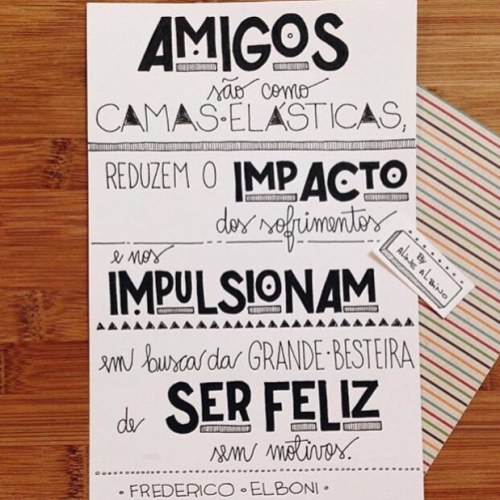 AMIGOS
são como
CAMAS·ELÁSTICAS,
REDUZEM O IMPACTO
dos sofrimentos
e nos
IMPULSIONAM
em busca da GRANDE·BESTEIRA
de SER FELIZ
sem motivos.
·FREDERICO·ELBONI·
BY
ALINE ALBINO